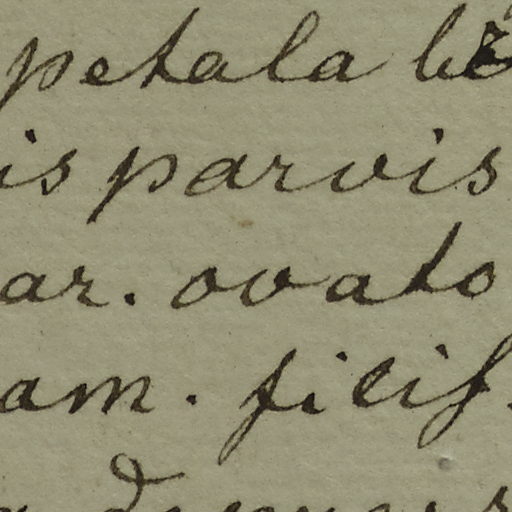 petala
is parvis
ar. ovato
am. filif.